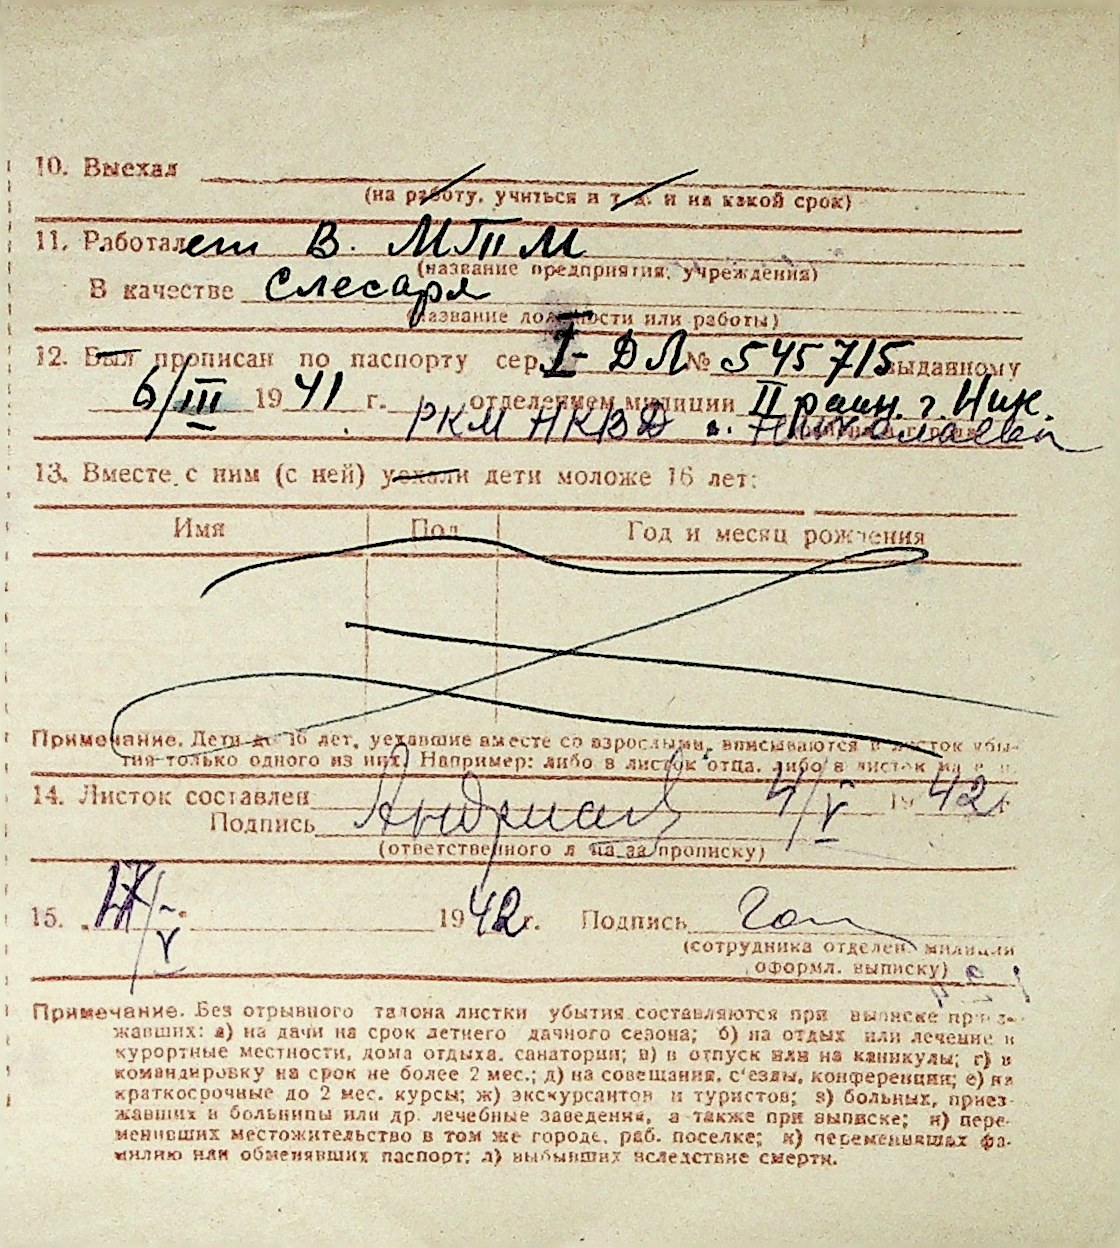 10. Выехал
(на работу, учиться и т. д. и на какой срок)
11. Работает В. МТПМ
(название предприятия, учреждения)
В качестве Слесаря
(название должности или работы)
12. Был прописан по паспорту сер. I-ДЛ № 545715 выданному
6/III 1941 г. отделением милиции II район. г. Ник.
РКМ НКВД г. Николаева
13. Вместе с ним (с ней) уехали дети моложе 16 лет:
Имя Пол Год и месяц рождения
Примечание. Дети до 16 лет, уехавшие вместе со взрослыми, вписываются в листок убы-
тия только одного из них. Например: либо в листок отца, либо в листок
14. Листок составлен 4/V 1942 г.
Подпись
(ответственного лица за прописку)
15. /V 1942 г. Подпись
(сотрудника отделен. милиции
оформл. выписку)
Примечание. Без отрывного талона листки убытия составляются при выписке приез-
жавших: а) на дачи на срок летнего дачного сезона; б) на отдых или лечение в
курортные местности, дома отдыха, санатории; в) в отпуск или на каникулы; г) в
командировку на срок не более 2 мес.; д) на совещания, с'езды, конференции; е) на
краткосрочные до 2 мес. курсы; ж) экскурсантов и туристов; з) больных, приез-
жавших в больницы или др. лечебные заведения, а также при выписке; и) пере-
менивших местожительство в том же городе, раб. поселке; к) переменивших фа-
милию или обменявших паспорт; л) выбывших вследствие смерти.